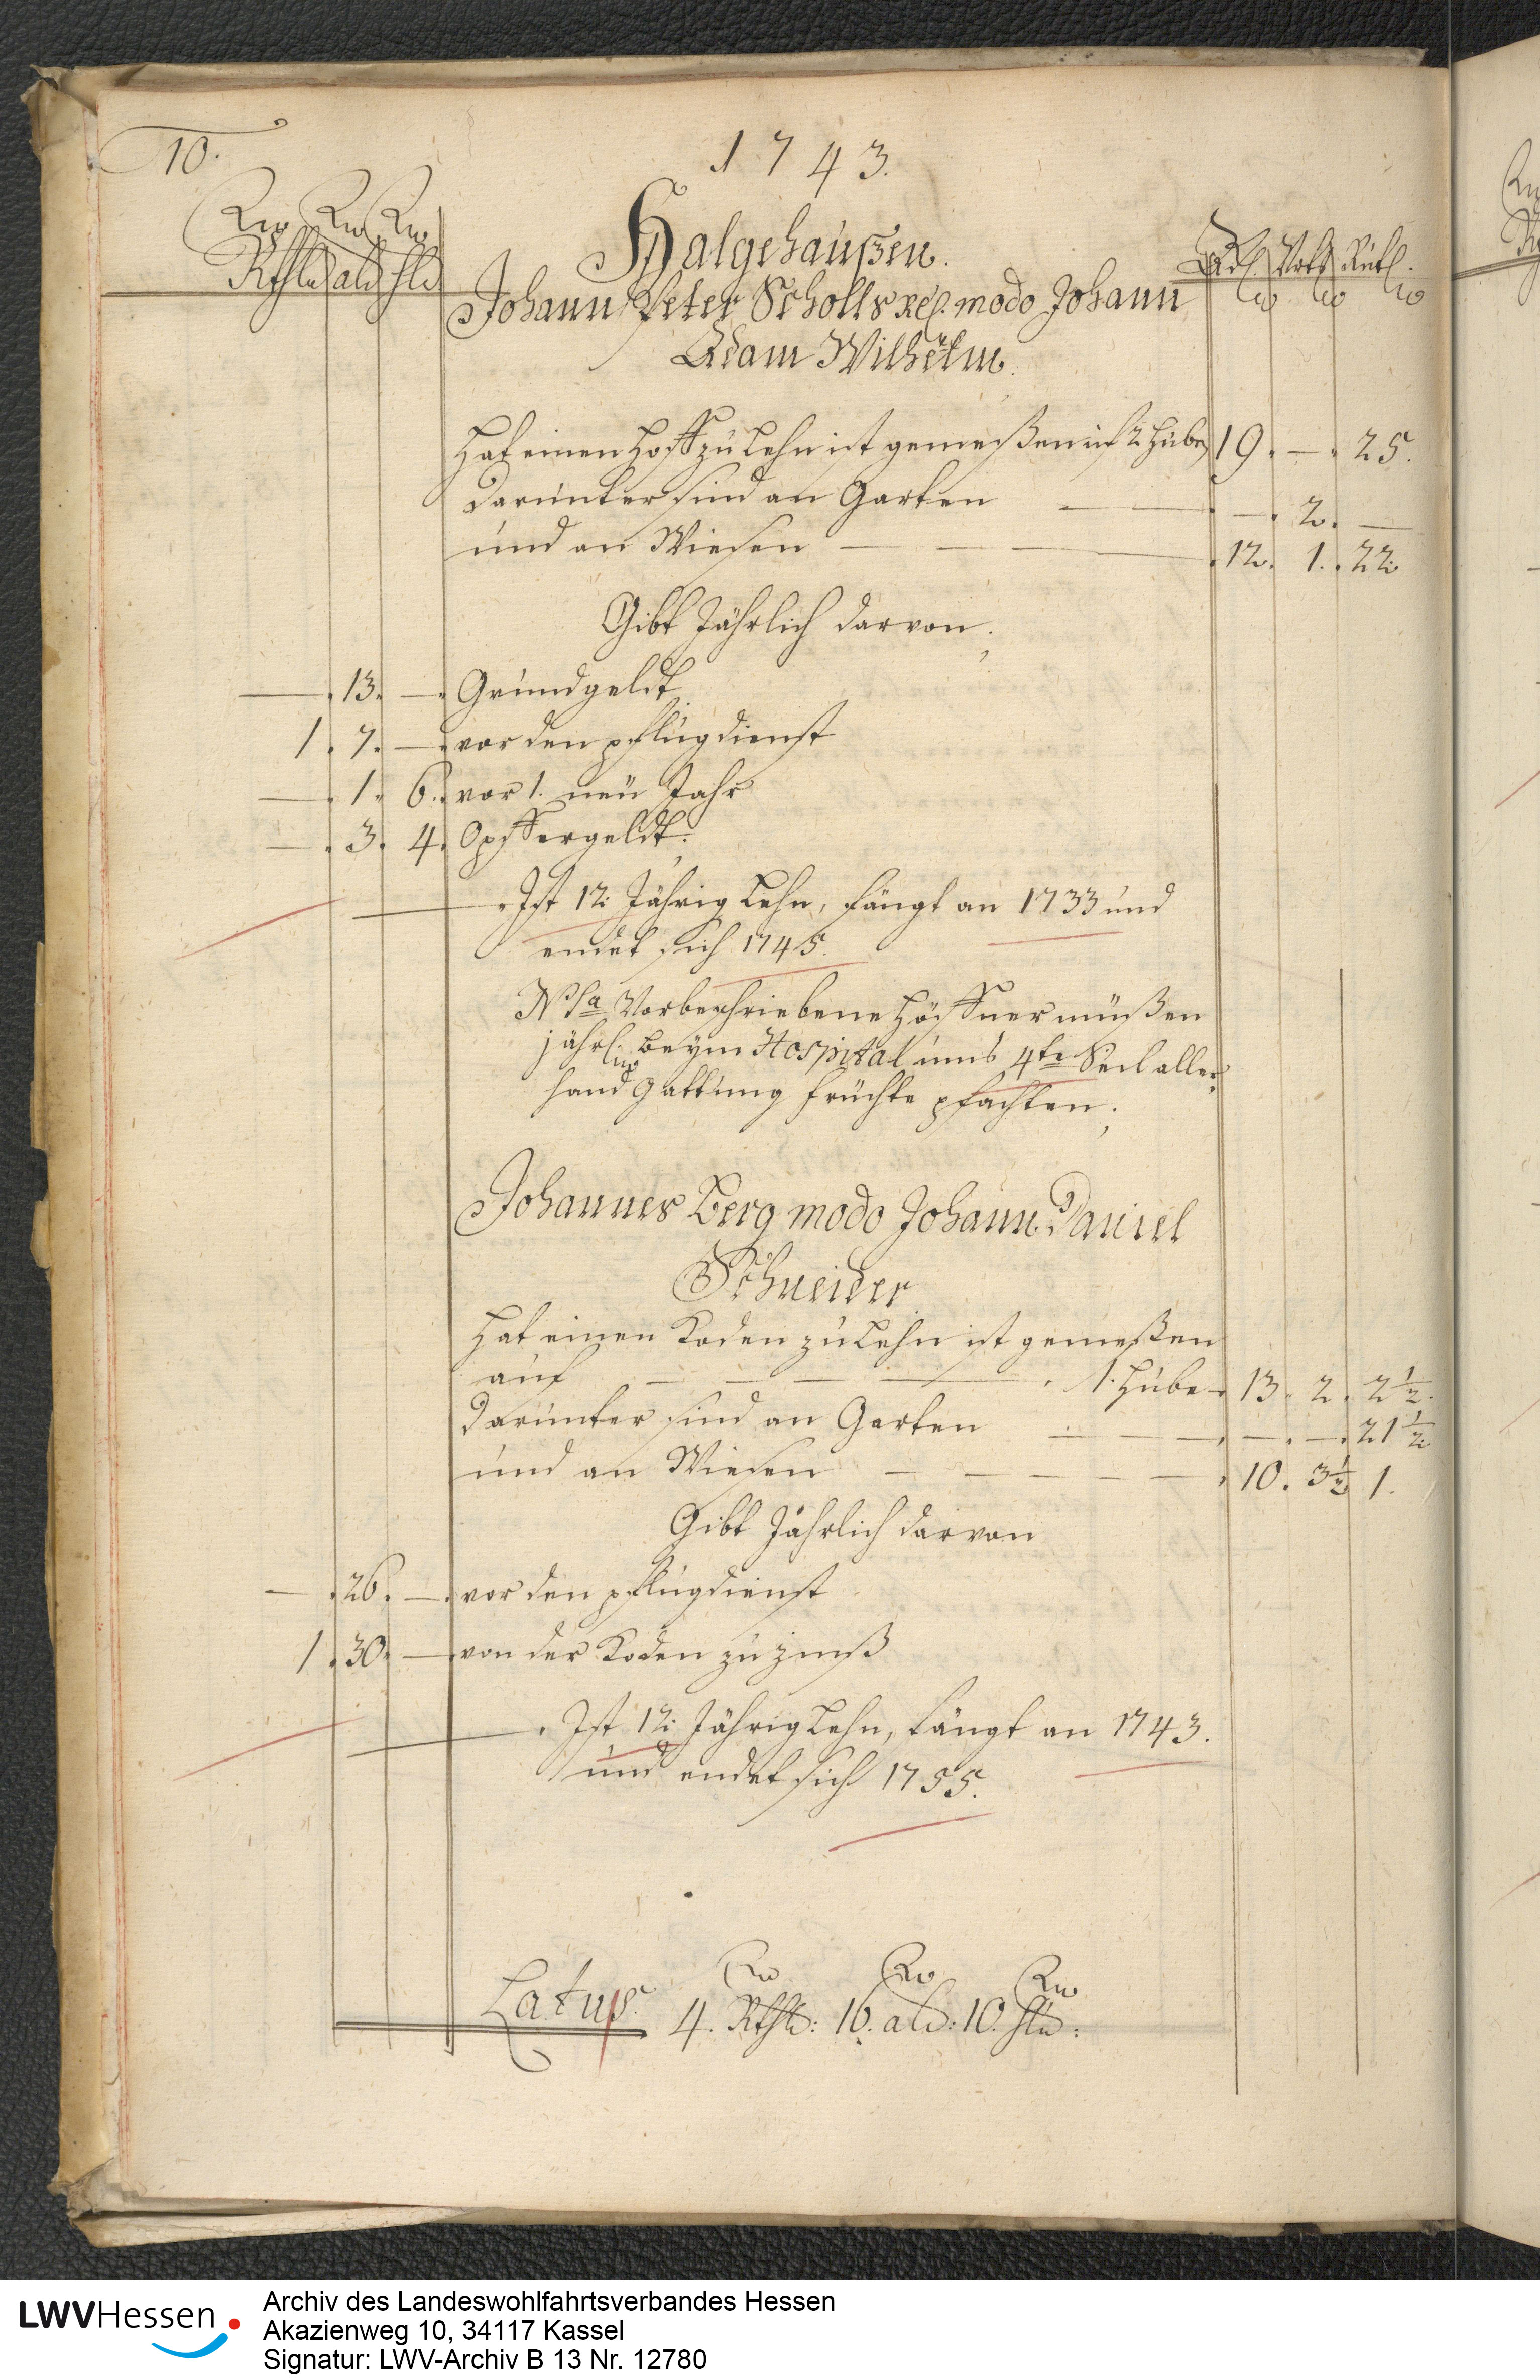 10.
1743.
Halgehaußen.
Rthlr alb hlr
Ack. Vrtl Ruth.
Johann Peter Scholls Rel. modo Johann
Adam Wilhelm.
Hat einen Hoff zu Lehn ist gemeßen uf 2 Hube 19. — 25.
Darunter sind an Garten — 2. —
und an Wiesen 12. 1. 22
Gibt Jährlich darvon,
— 13. — Grundgeldt
1. 7. — vor den pflugdienst
— 1. 6. vor 1. neu Jahr
— 3. 4. Opffergeldt.
Ist 12. Jährig Lehn, fängt an 1733 und
endet sich 1745.
NBa Vorbeschriebene Höffner müßen
jährl. beym Hospital umb 4te Seil aller
hand gattung früchte pfachten.
Johannes Berg modo Johann Daniel
Schneider
Hat einen Koden zu Lehn ist gemeßen
auf 1. Hube 13. 2. 2 1/2.
Darunter sind an Garten — — 21 1/2
und an Wiesen 10. 3 1/2 1.
Gibt Jährlich darvon
— 26. — vor den pflugdienst
1. 30. — von der Koden zu zinß
Ist 12. Jährig Lehn, fängt an 1743.
und endet sich 1755.
Latus. 4. Rthlr: 16. alb: 10. hlr:
LWVHessen
Archiv des Landeswohlfahrtsverbandes Hessen
Akazienweg 10, 34117 Kassel
Signatur: LWV-Archiv B 13 Nr. 12780